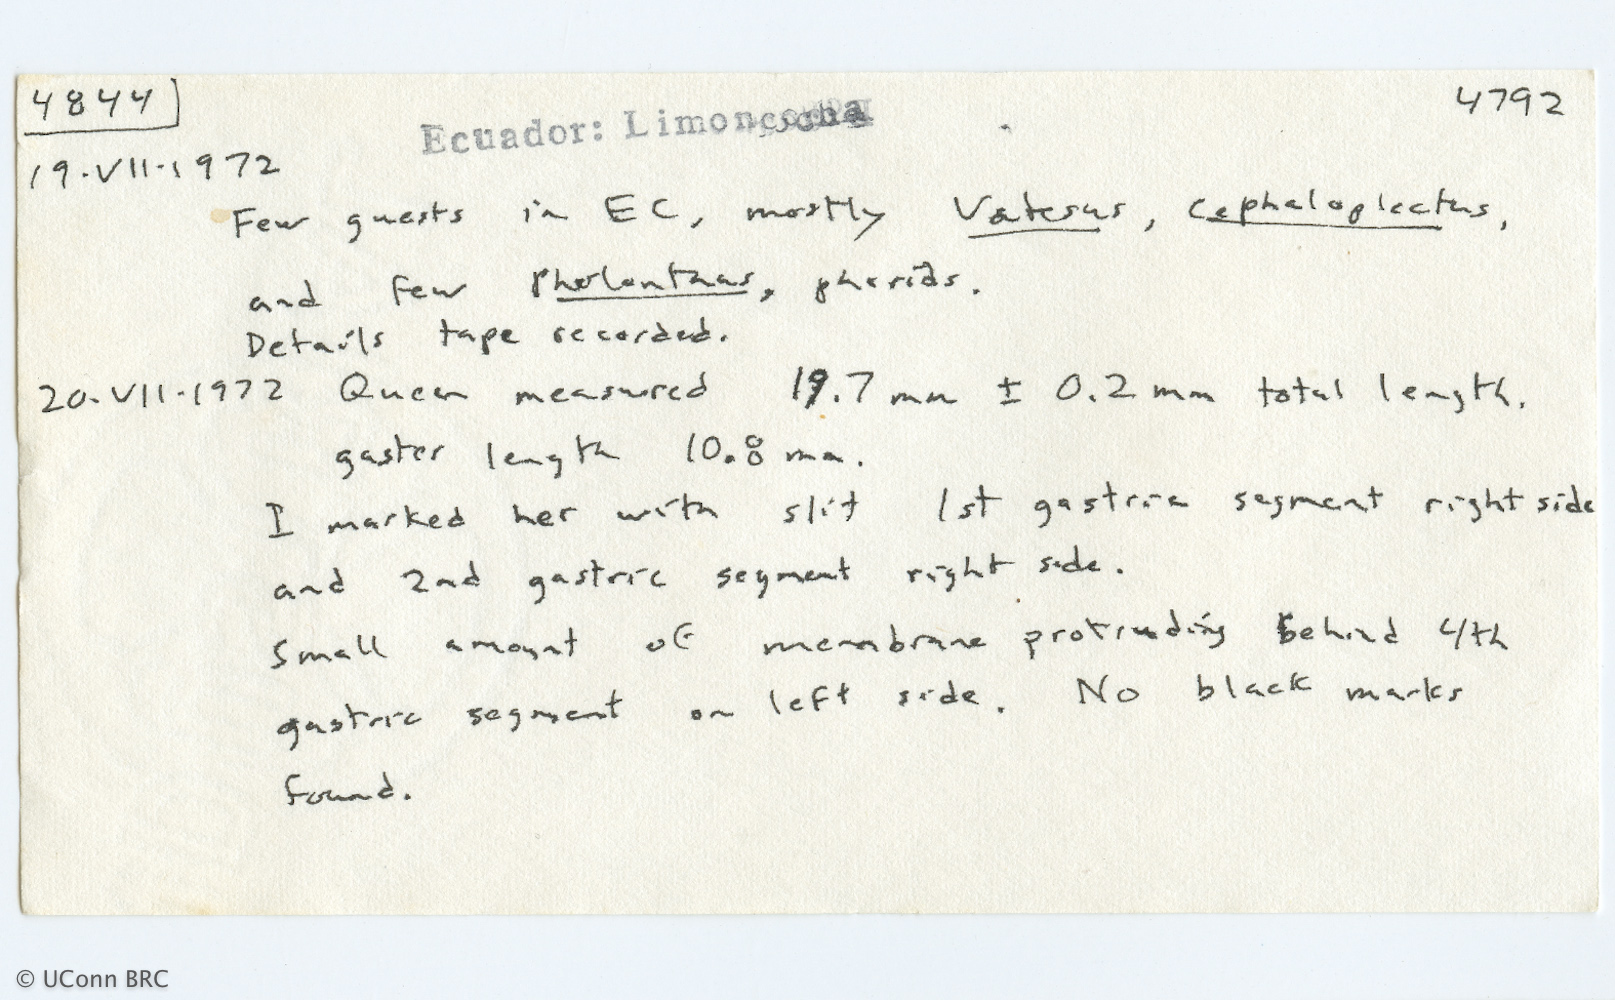 4844
4792
Ecuador: Limoncocha
19.VII.1972
Few guests in EC, mostly Vatesus, Cephaloplectus,
and few Pholontaus, phorids.
Details tape recorded.
20.VII.1972 Queen measured 19.7 mm ± 0.2 mm total length.
gaster length 10.8 mm.
I marked her with slit 1st gastric segment right side
and 2nd gastric segment right side.
Small amount of membrane protruding behind 4th
gastric segment on left side. No black marks
found.
© UConn BRC